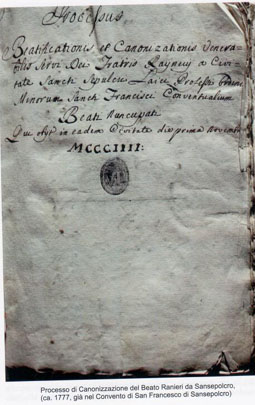 Processus
Beatificationis et Canonizationis Venera-
bilis Servi Dei Fratris Raynerij a Civi-
tate Sancti Sepulcri Laici Professi Ordinis
Minorum Sancti Francisci Conventualium
Beati Nuncupati
Qui obijt in eadem Civitate die prima Novembris
MCCCIIII:
Processo di Canonizzazione del Beato Ranieri da Sansepolcro,
(ca. 1777, già nel Convento di San Francesco di Sansepolcro)